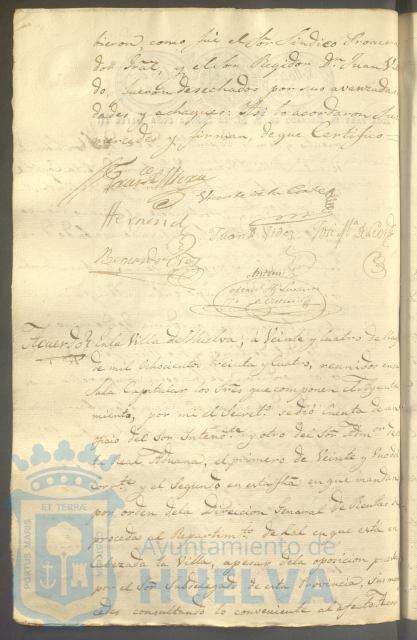 tieron, como fué el Sor Sindico Procura
dor Gral, y el Sor Regidor Dn Juan Vi
do, fueron desechados por sus avanzadas
edades y achaques: Asi lo acordaron Sus
mercedes y firman, de que Certifico
Vicente de la Corte
Hernand
Juan Vides Jose Ma de la Corte
Bernardo
Acuerdo En la Villa de Huelva, á Veinte y Cuatro de
de mil Ochocientos Treinta y Cuatro, reunidos en su
Sala Capitular los Sres que componen el Ayunta
miento, por mi el Secreto se dió Cuenta de un
oficio del Sor Intendte y otro del Sor Admor de
la Real Aduana, el primero de Veinte y
Corte y el Segundo en esta fha en que mandan
por orden de la Direccion General de Rentas se
proceda al Repartimto de la Sal en que está en
Cabezada la Villa, apesar de la oposicion
por el Sor Subdelegado de esta Provincia, Sus mer
cedes consultando lo conveniente al efecto Acor
PORTUS MARIS ET TERRAE CUSTODIA
Ayuntamiento de
HUELVA